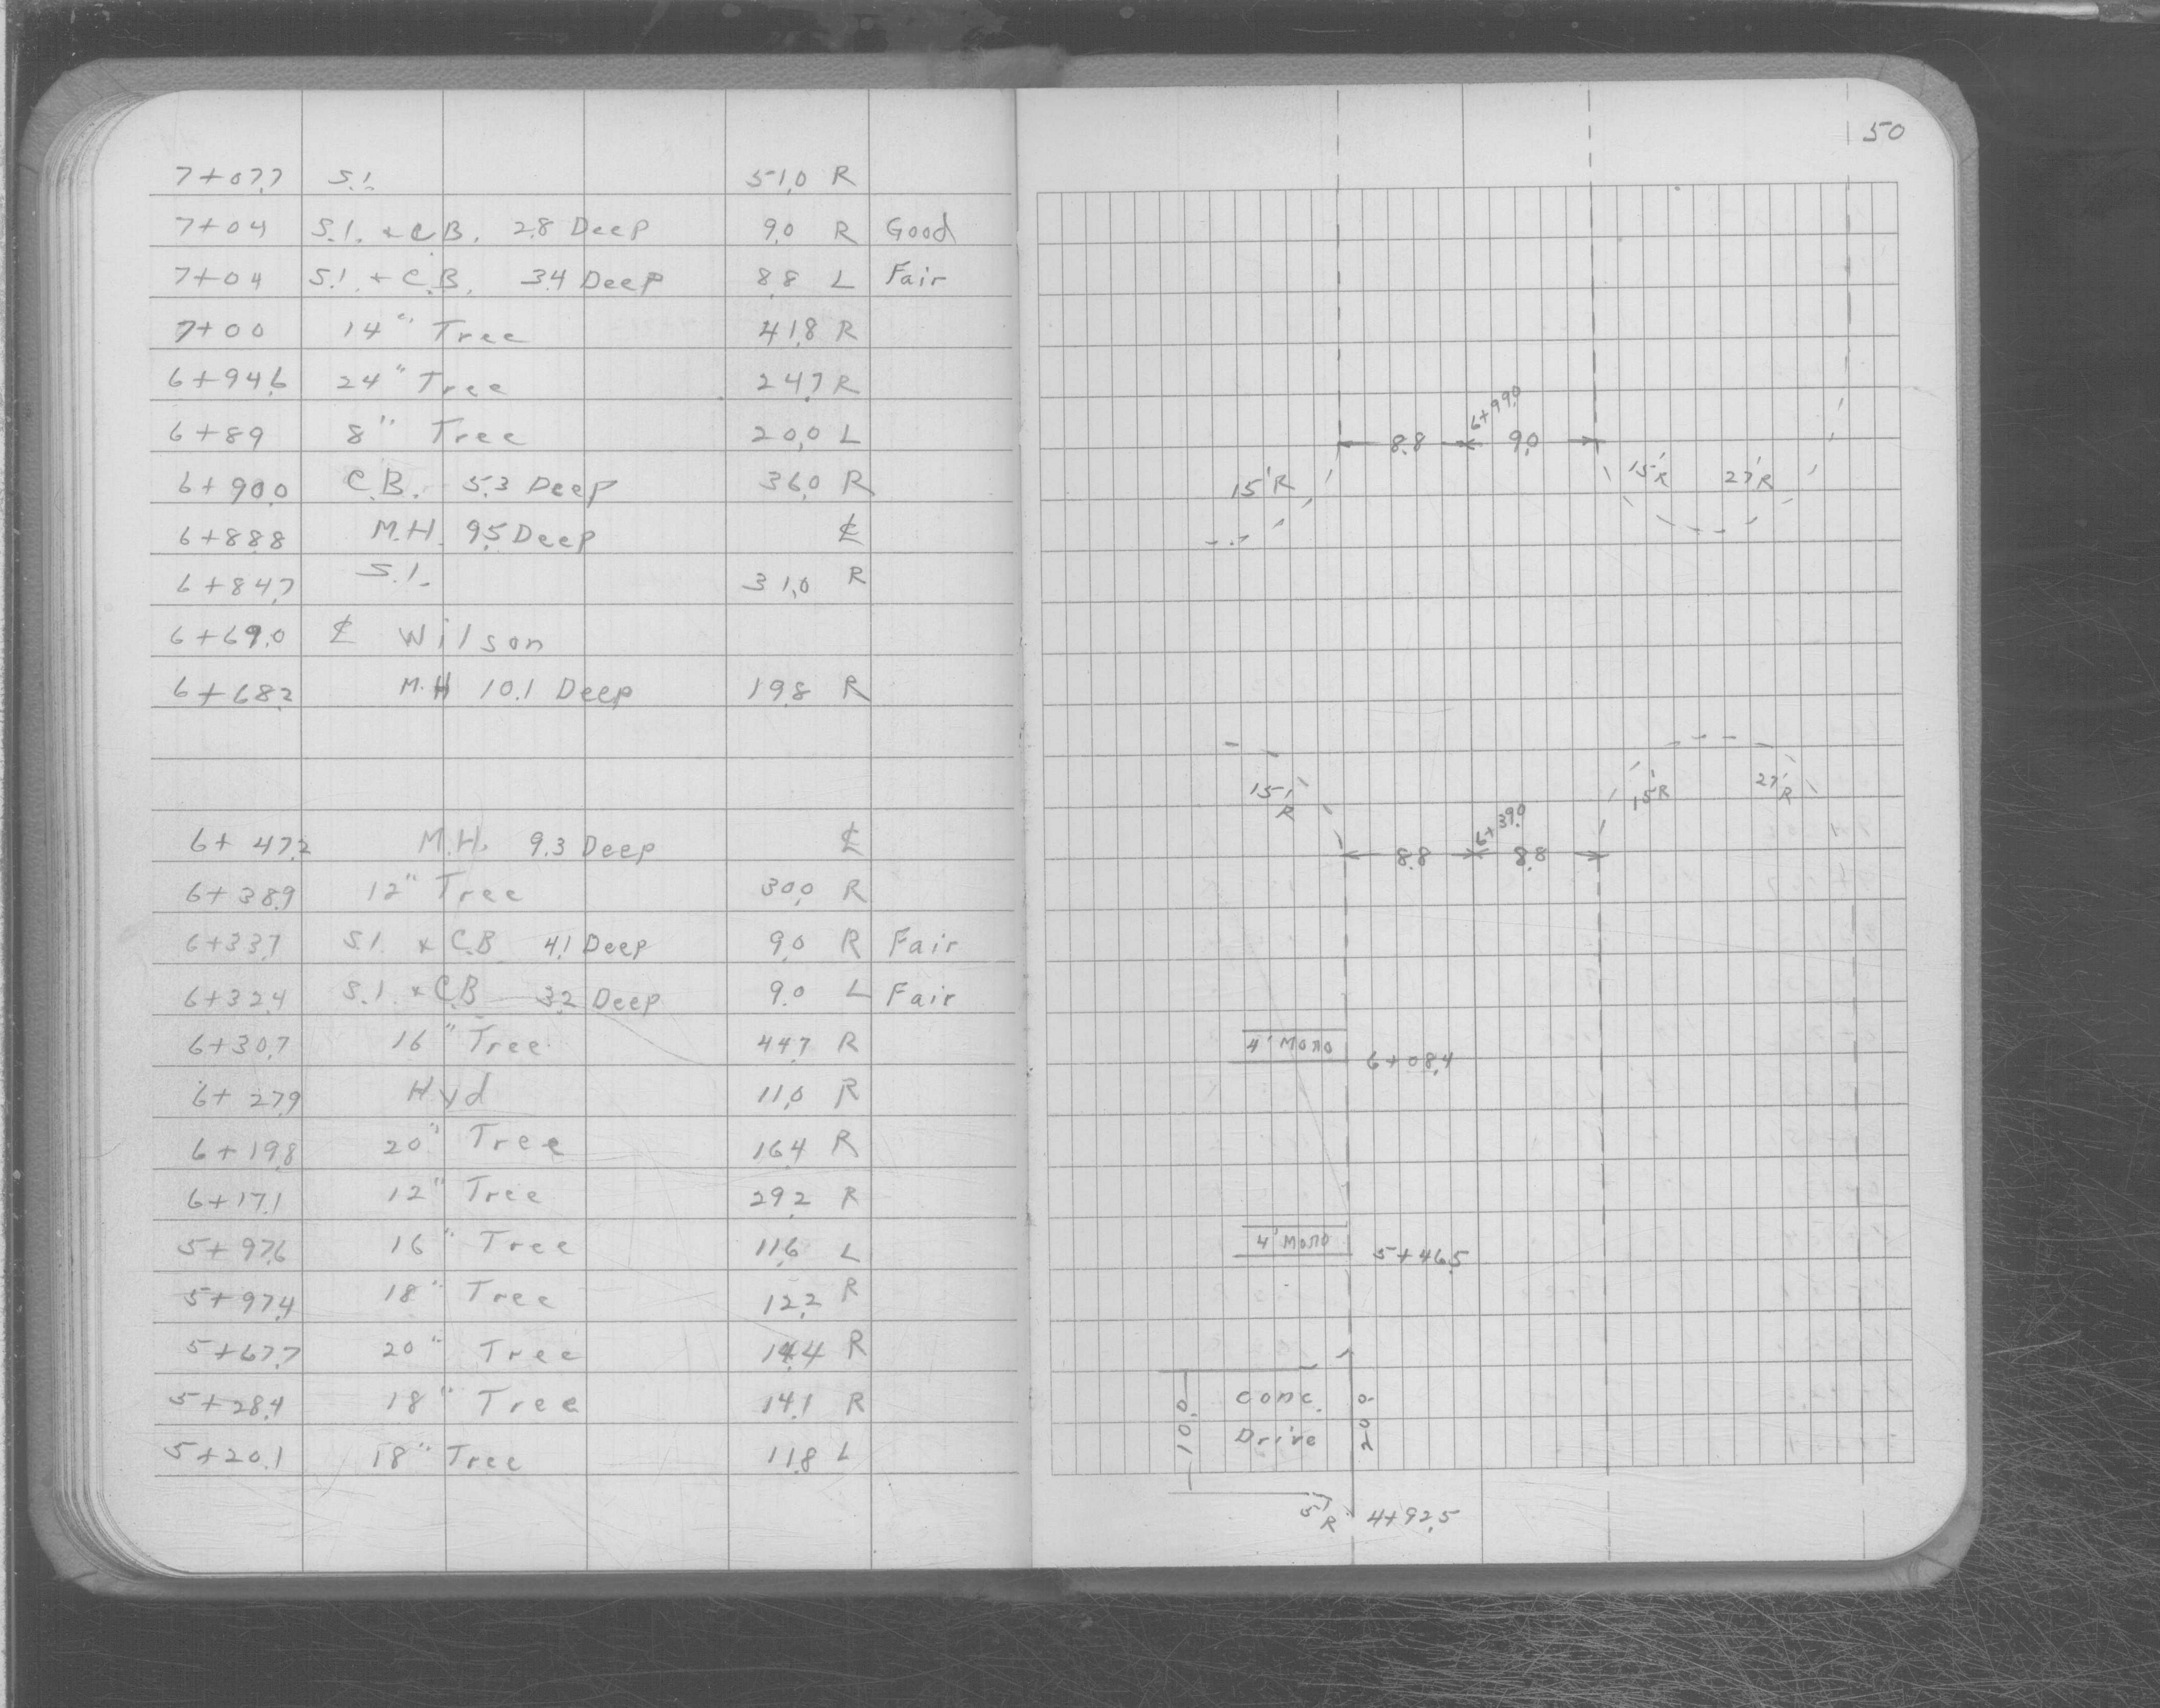 7+07.7 S.I. 51.0 R
7+04 S.I. + C.B. 2.8 Deep 9.0 R Good
7+04 S.I. + C.B. 3.4 Deep 8.8 L Fair
7+00 14" Tree 41.8 R
6+94.6 24" Tree 24.7 R
6+89 8" Tree 20.0 L
6+90.0 C.B. 5.3 Deep 36.0 R
6+88.8 M.H. 9.5 Deep ℄
6+84.7 S.I. 31.0 R
6+69.0 ℄ Wilson
6+68.2 M.H 10.1 Deep 19.8 R
6+47.2 M.H. 9.3 Deep ℄
6+38.9 12" Tree 30.0 R
6+33.7 S.I. + C.B 4.1 Deep 9.0 R Fair
6+32.4 S.I. + C.B 3.2 Deep 9.0 L Fair
6+30.7 16" Tree 44.7 R
6+27.9 Hyd 11.0 R
6+19.8 20" Tree 16.4 R
6+17.1 12" Tree 29.2 R
5+97.6 16" Tree 11.6 L
5+97.4 18" Tree 12.2 R
5+67.7 20" Tree 14.4 R
5+28.4 18" Tree 14.1 R
5+20.1 18" Tree 11.8 L
50
6+99.0
8.8 9.0
15'R 15'R 27'R
15'R 15'R 27'R
6+39.0
8.8 8.8
4' Mono 6+08.4
4' Mono 5+46.5
10.0 Conc. Drive 20.0
5'R 4+92.5